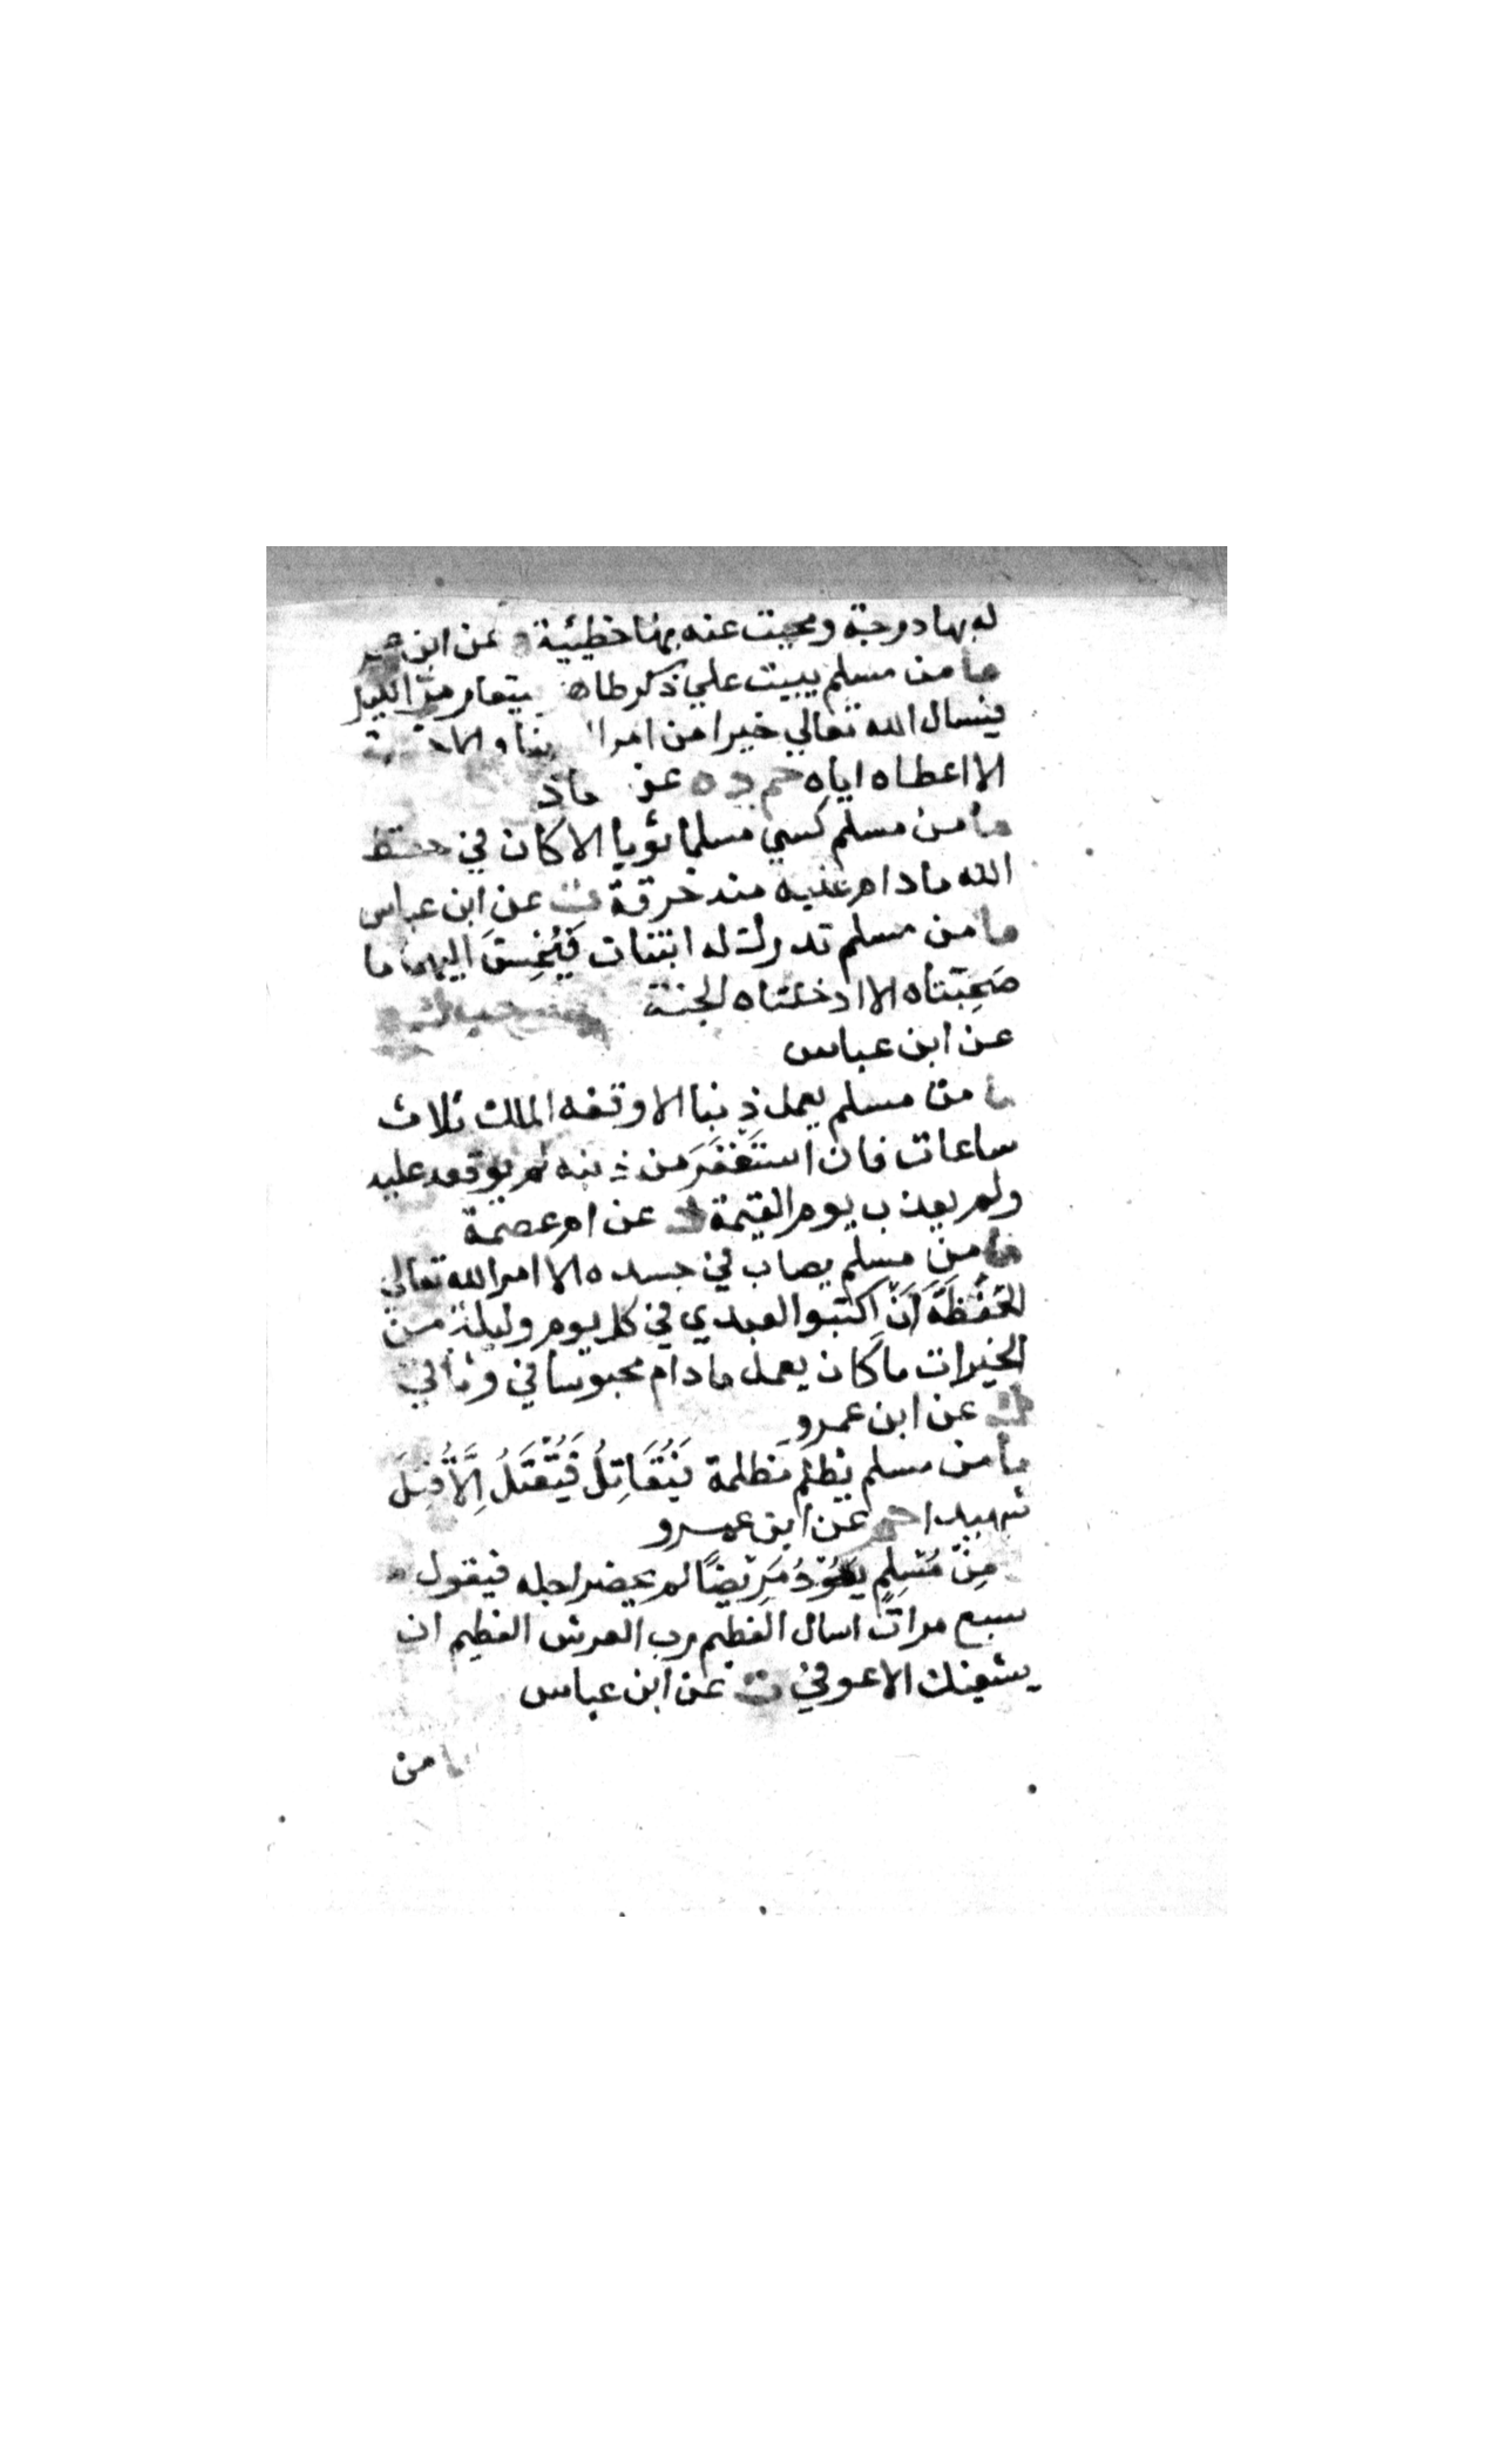 له بها درجة ومحيت عنه بها خطيئة عن ابن
ما من مسلم يبيت علي ذكر طاهر يتعار من الليل
فيسال الله تعالي خيرا من امر الدنيا والاخرة
الا اعطاه اياه حم د ه عن معاذ
ما من مسلم كسي مسلما ثوبا الا كان في حفظ
الله ما دام عليه منه خرقة ت عن ابن عباس
ما من مسلم تدرك له ابنتان فَيُحْسِنَ اليهما ما
صَحِبَتاه الا ادخلتاه الجنة حب ك
عن ابن عباس
ما من مسلم يعمل ذنبا الا وقفه الملك ثلاث
ساعات فان استَغفَرَ من ذنبه لم يوقعه عليه
ولم يعذب يوم القيمة ك عن ام عصمة
ما من مسلم يصاب في جسده الا امر الله تعالي
الحَفَظَةَ اَنْ اكتبوا لعبدي في كل يوم وليلة من
الخيرات ما كان يعمل ما دام محبوسا في وثاقي
ك عن ابن عمرو
ما من مسلم يُظلَم مَظلمة فَيُقَاتِلُ فَيُقْتَلُ اِلَّا قُتِلَ
شهيدا حم عن ابن عمرو
مِنْ مُسْلِمٍ يَعُوْدُ مَرِيْضًا لم يحضر اجله فيقول
سبع مرات اسال العظيم رب العرش العظيم ان
يشفيك الا عوفي ت عن ابن عباس
ما من